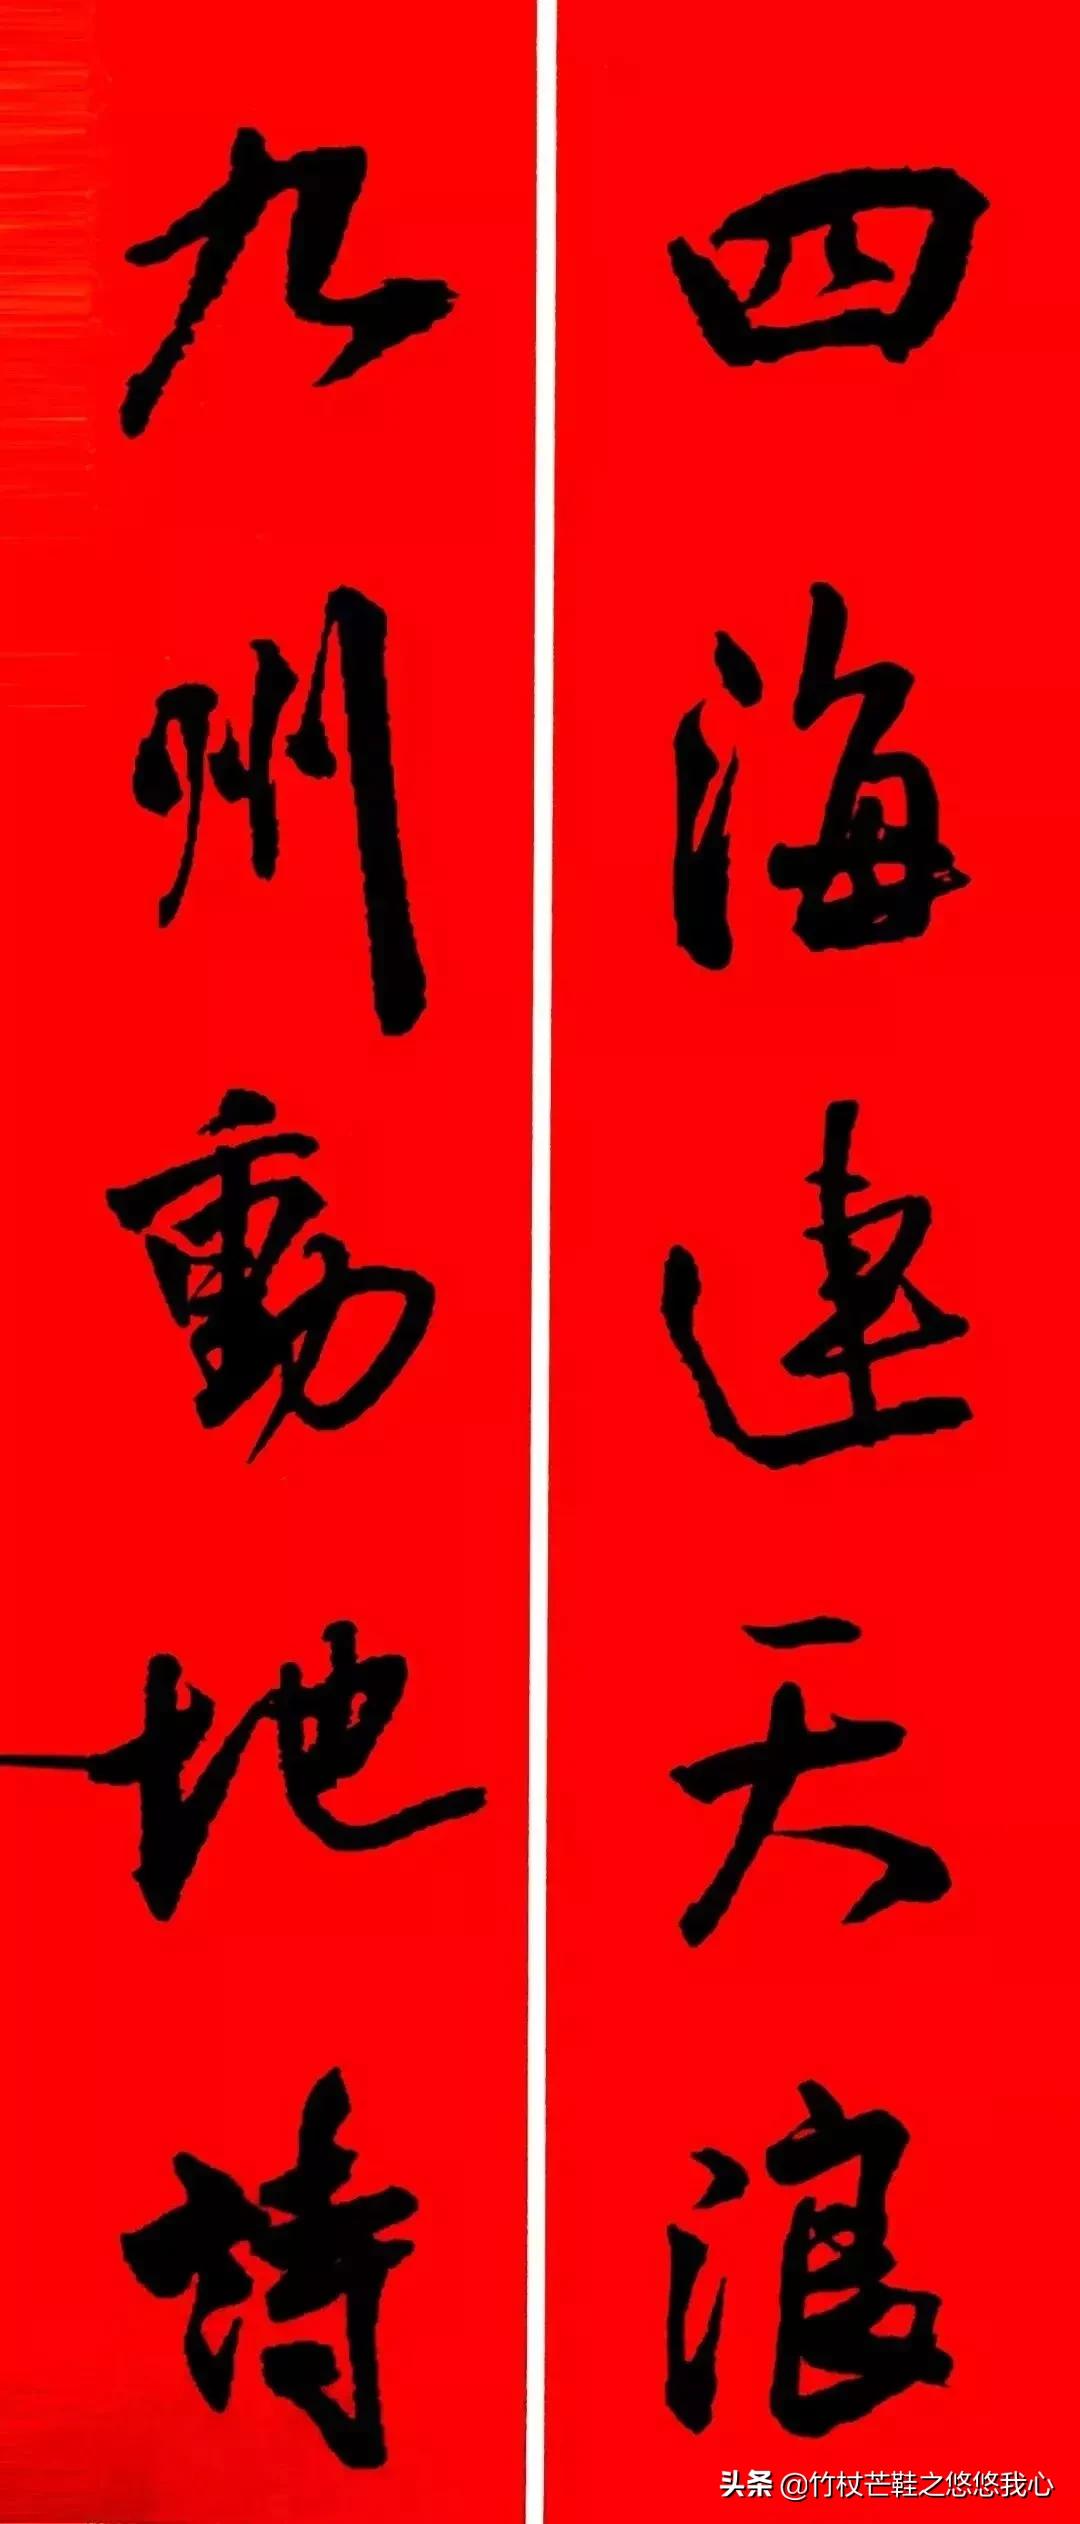 四海連天浪
九州動地詩
头条 @竹杖芒鞋之悠悠我心